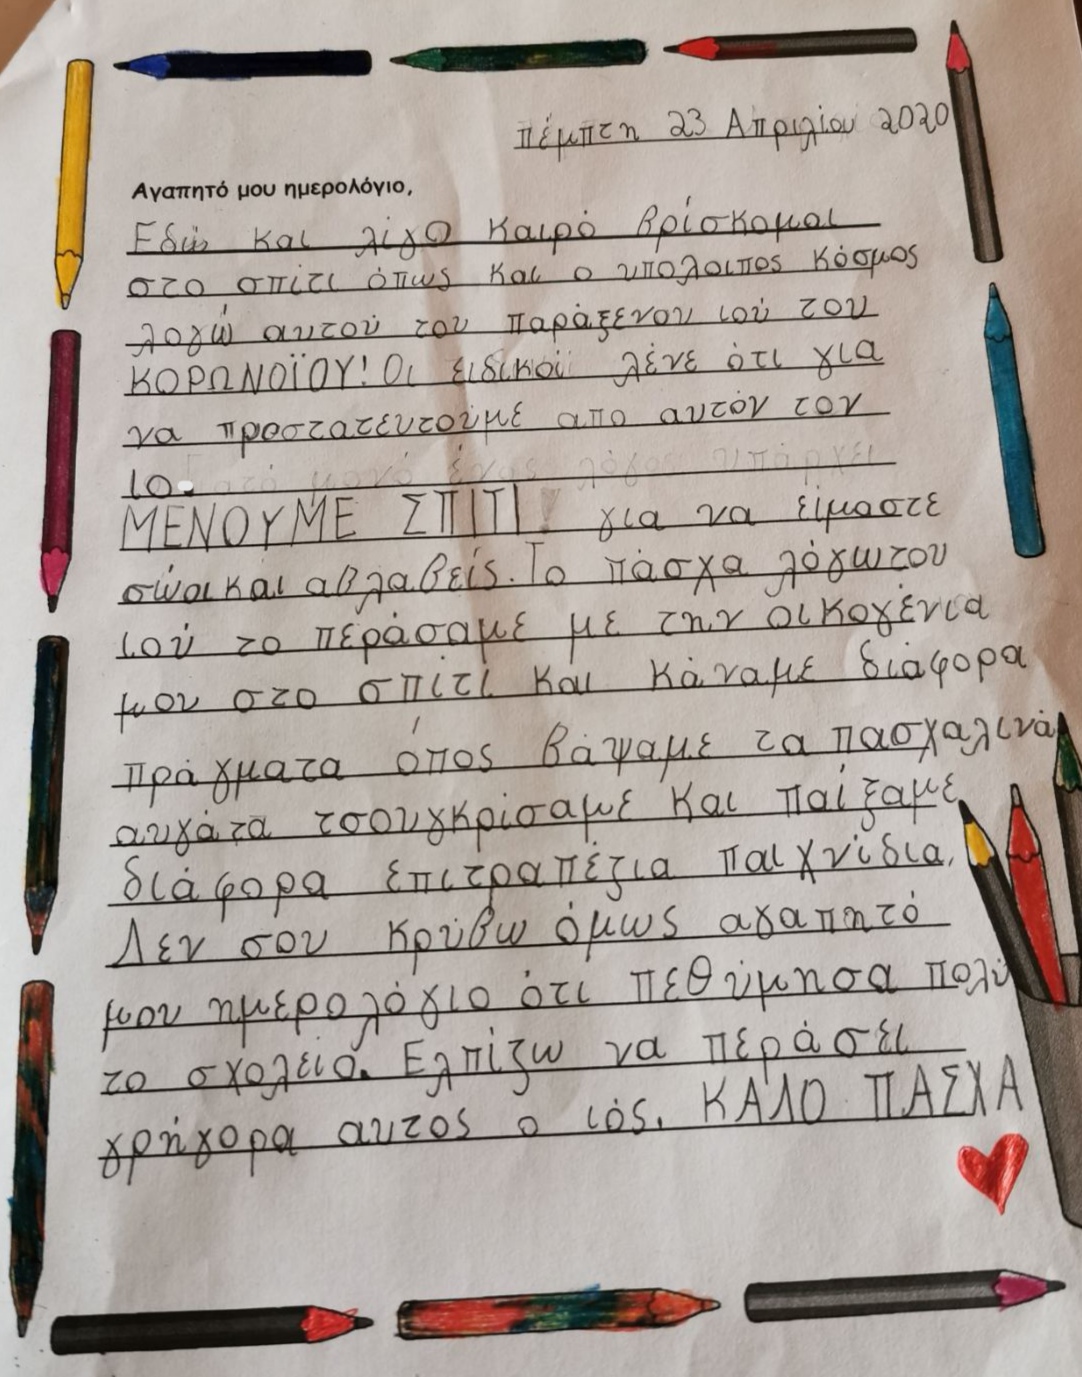 πέμπτη 23 Απριλίου 2020
Αγαπητό μου ημερολόγιο,
Εδώ και λίγο καιρό βρίσκομαι
στο σπίτι όπως και ο υπολοιπος κόσμος
λογώ αυτού του παράξενου ιού του
ΚΟΡΩΝΟΪΟΥ! Οι ειδικοί λένε ότι για
να προστατευτούμε απο αυτόν τον
ιο.
ΜΕΝΟΥΜΕ ΣΠΙΤΙ! για να είμαστε
σώοι και αβλαβείς. Το πάσχα λόγω του
ιού το περάσαμε με την οικογένια
μου στο σπίτι και κάναμε διάφορα
πράγματα όπος βάψαμε τα πασχαλινά
αυγά τα τσουγκρίσαμε και παίξαμε
διάφορα επιτραπέζια παιχνίδια.
Δεν σου κρύβω όμως αγαπητό
μου ημερολόγιο ότι πεθύμησα πολύ
το σχολείο. Ελπίζω να περάσει
γρήγορα αυτος ο ιός. ΚΑΛΟ ΠΑΣΧΑ